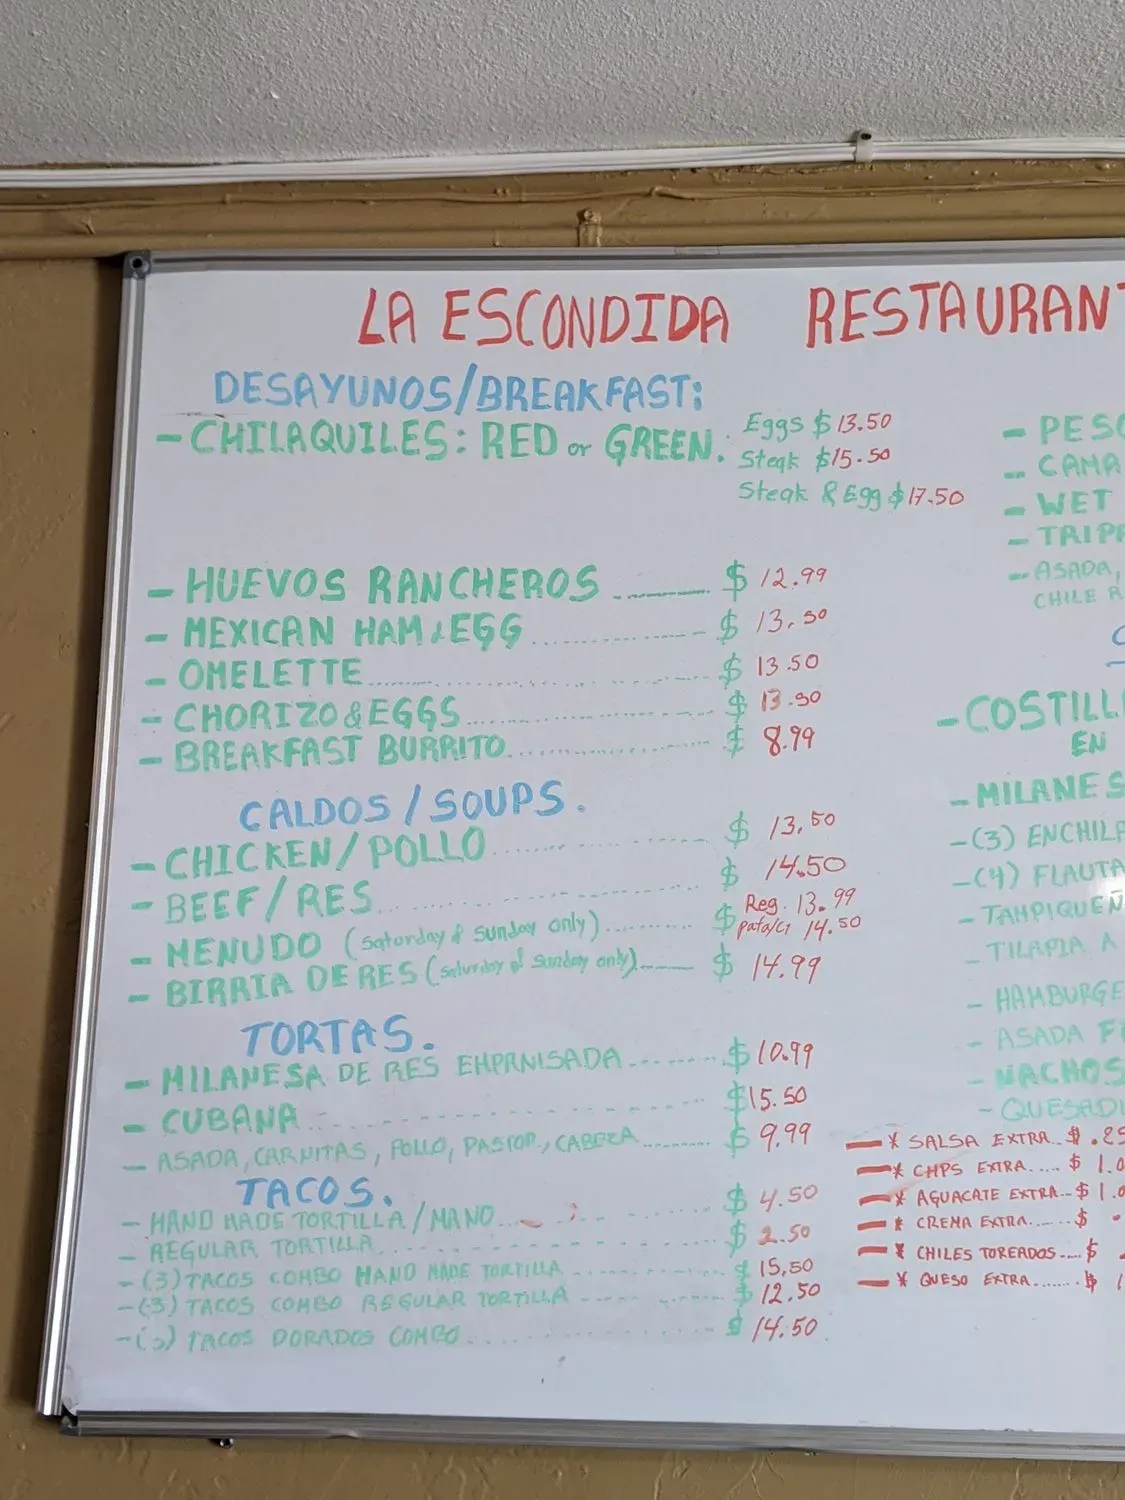 LA ESCONDIDA RESTAURANT
DESAYUNOS/BREAKFAST:
- CHILAQUILES: RED or GREEN. Eggs $13.50
Steak $15.50
Steak & Egg $17.50
- HUEVOS RANCHEROS ........ $ 12.99
- MEXICAN HAM & EGG ........ $ 13.50
- OMELETTE ........ $ 13.50
- CHORIZO & EGGS ........ $ 13.50
- BREAKFAST BURRITO ........ $ 8.99
CALDOS / SOUPS.
- CHICKEN / POLLO ........ $ 13.50
- BEEF / RES ........ $ 14.50
- MENUDO (Saturday & Sunday only) ........ $ Reg. 13.99
14.50
- BIRRIA DE RES (Saturday & Sunday only) ........ $ 14.99
TORTAS.
- MILANESA DE RES EMPANISADA ........ $10.99
- CUBANA ........ $15.50
- ASADA, CARNITAS, POLLO, PASTOR, CABEZA ........ $ 9.99
TACOS.
- HAND MADE TORTILLA / MANO ........ $ 4.50
- REGULAR TORTILLA ........ $ 2.50
- (3) TACOS COMBO HAND MADE TORTILLA ........ $ 15.50
- (3) TACOS COMBO REGULAR TORTILLA ........ $ 12.50
- TACOS DORADOS COMBO ........ $ 14.50
- PESC
- CAMA
- WET
- TRIPA
- ASADA,
CHILE R
- COSTILL
EN
- MILANES
- (3) ENCHILA
- (4) FLAUTA
- TAMPIQUEÑ
- TILAPIA A
- HAMBURGE
- ASADA F
- NACHOS
- QUESADI
* SALSA EXTRA.. $ .25
* CHPS EXTRA..... $ 1.0
* AGUACATE EXTRA.. $ 1.0
* CREMA EXTRA...... $
* CHILES TOREADOS.... $
* QUESO EXTRA....... $ 1